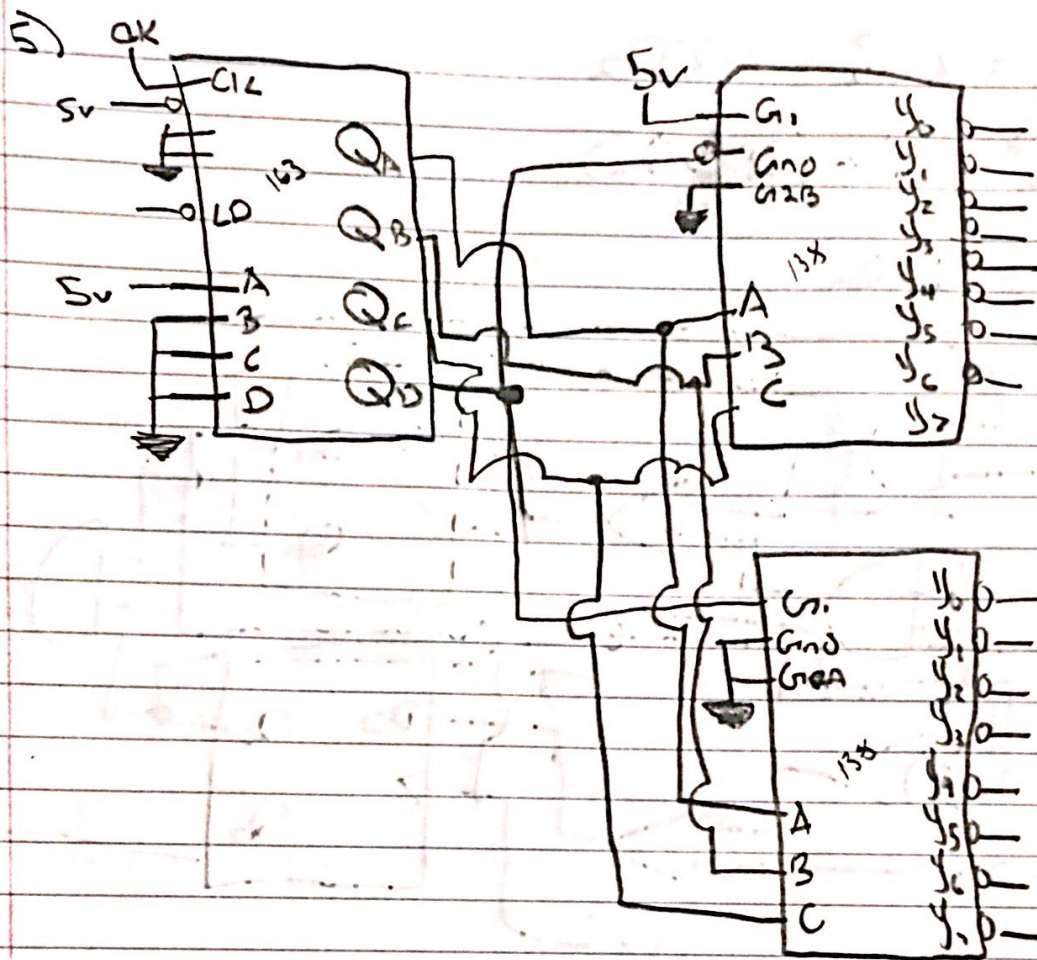 5)
CLK
5v
163
LD
5v
A
B
C
D
QA
QB
QC
QD
5v
G1
GND
G2B
138
A
B
C
y0
y1
y2
y3
y4
y5
y6
y7
G1
GND
138
A
B
C
y0
y1
y2
y3
y4
y5
y6
y7